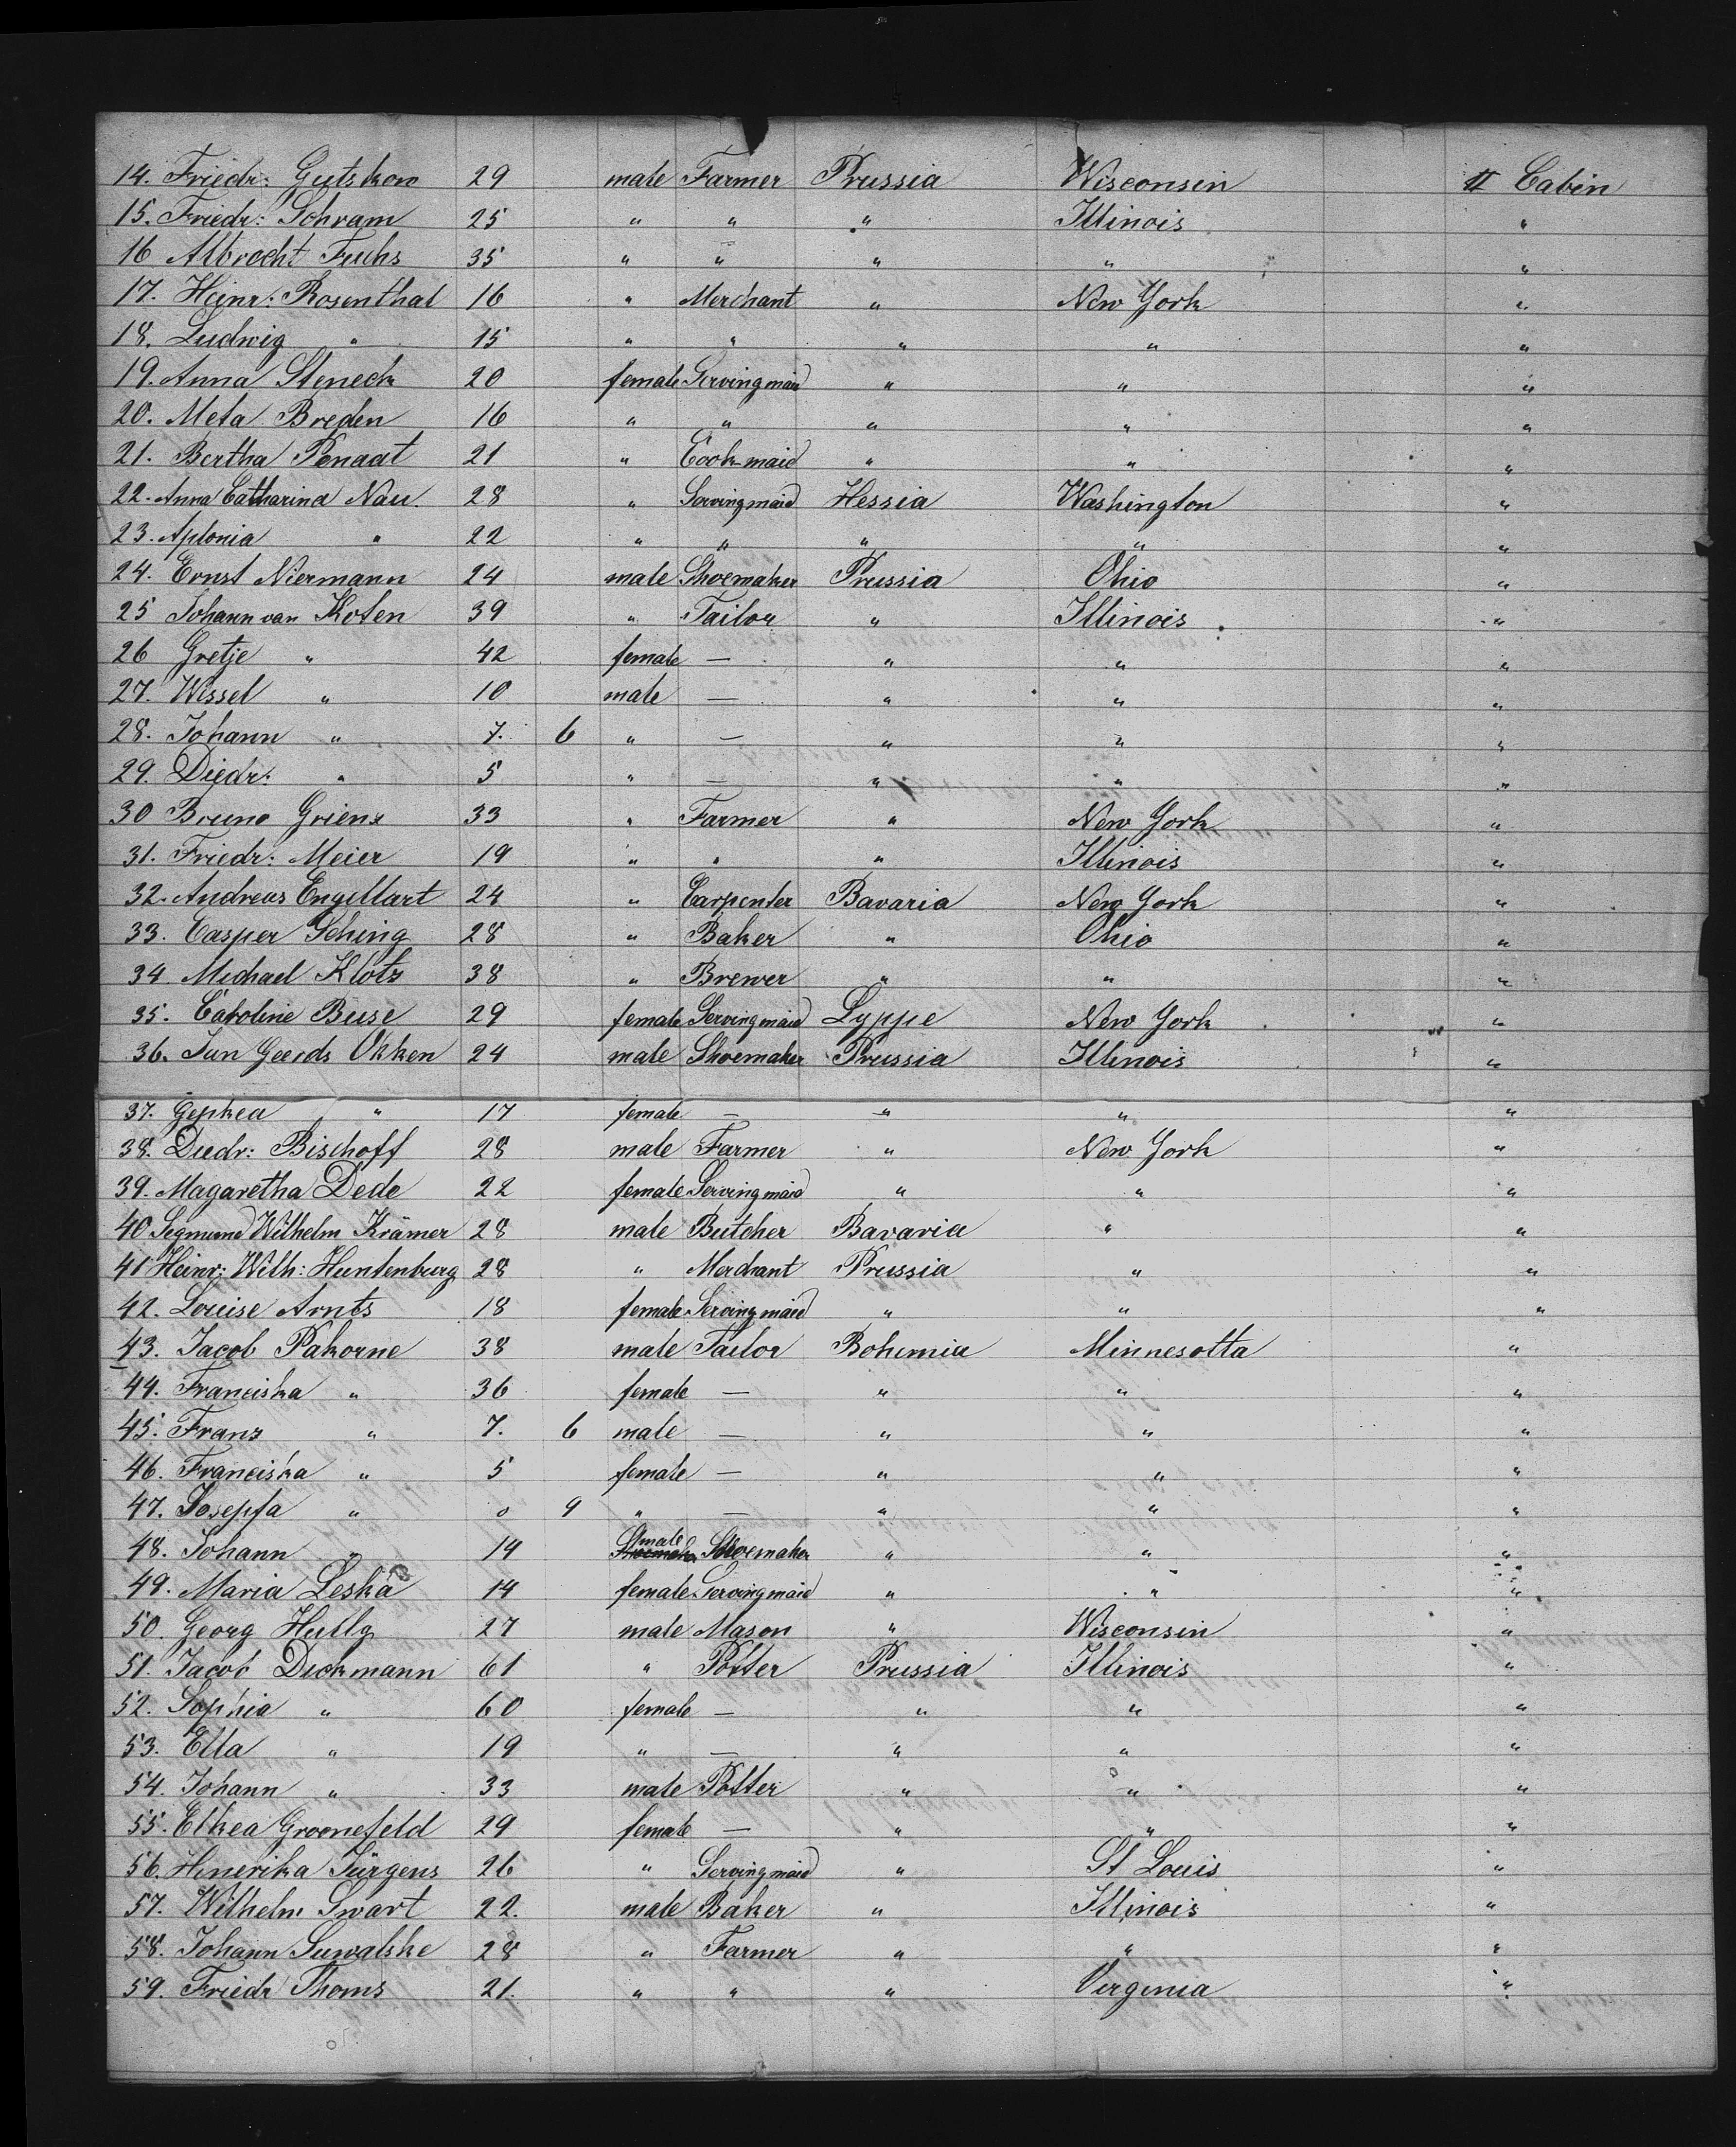 14. Friedr: Gutskow 29 male Farmer Prussia Wisconsin II Cabin
15. Friedr: Schram 25 " " " Illinois "
16 Albrecht Fuchs 35 " " " " "
17. Heinr: Rosenthal 16 " Merchant " New York "
18. Ludwig " 15 " " " " "
19. Anna Steneck 20 female Servingmaid " " "
20. Meta Breden 16 " " " " "
21. Bertha Penaat 21 " Cook-maid " " "
22. Anna Catharina Nau. 28 " Servingmaid Hessia Washington "
23. Aplonia " 22 " " " " "
24. Ernst Niermann 24 male Shoemaker Prussia Ohio "
25 Johann van Koten 39 " Tailor " Illinois "
26 Gretje " 42 female — " " "
27. Wessel " 10 male — " " "
28. Johann " 7. 6 " — " " "
29. Diedr: " 5 " — " " "
30 Bruno Griens 33 " Farmer " New York "
31. Friedr: Meier 19 " " " Illinois "
32. Andreas Engelhart 24 " Carpenter Bavaria New York "
33. Casper Sching 28 " Baker " Ohio "
34 Michael Klotz 38 " Brewer " " "
35. Caroline Buse 29 female Servingmaid Lyppe New York "
36. Jan Geerds Okken 24 male Shoemaker Prussia Illinois "
37. Gepkea " 17 female — " " "
38. Diedr: Bischoff 28 male Farmer " New York "
39. Magaretha Dede 22 female Servingmaid " " "
40 Segmund Wilhelm Krämer 28 male Butcher Bavaria " "
41 Heinr: Wilh: Huntenburg 28 " Merchant Prussia " "
42. Louise Arnts 18 female Servingmaid " " "
43. Jacob Pakorne 38 male Tailor Bohemia Minnesotta "
44. Franciska " 36 female — " " "
45. Franz " 7. 6 male — " " "
46. Franciska " 5 female — " " "
47. Josepfa " 0 9 " — " " "
48. Johann " 14 male Shoemaker " " "
49. Maria Leska 14 female Servingmaid " " "
50. Georg Hully 27 male Mason " Wisconsin "
51. Jacob Dickmann 61 " Potter Prussia Illinois "
52. Sophia " 60 female — " " "
53. Etta " 19 " — " " "
54. Johann " 33 male Potter " " "
55. Elkea Groenefeld 29 female — " " "
56. Hinerika Jürgens 26 " Servingmaid " St Louis "
57. Wilhelm Swart 22. male Baker " Illinois "
58. Johann Suwalske 28 " Farmer " " "
59. Friedr Thoms 21. " " " Verginia "